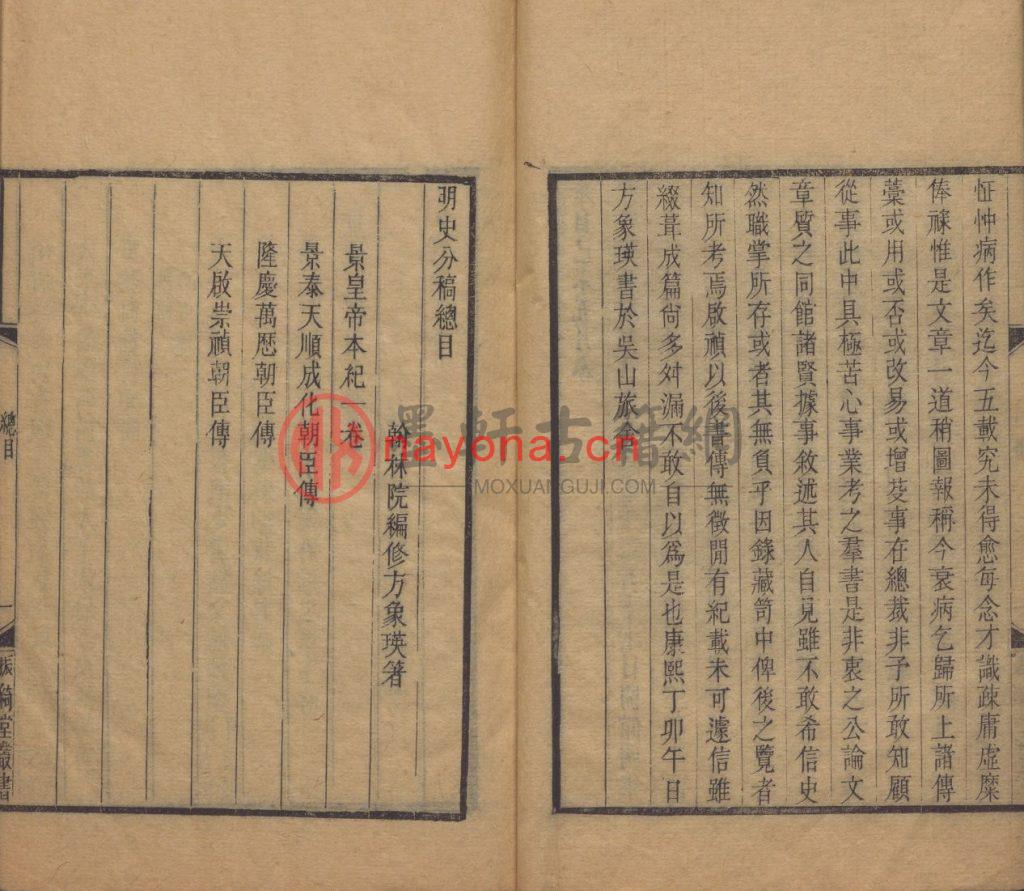 怔忡病作矣迄今五載究未得愈每念才識疎庸虛糜
俸祿惟是文章一道稍圖報稱今衰病乞歸所上諸傳
藁或用或否或改易或增芟事在總裁非予所敢知顧
從事此中具極苦心事業考之羣書是非衷之公論文
章質之同館諸賢據事敘述其人自見雖不敢希信史
然職掌所存或者其無負乎因錄藏笥中俾後之覽者
知所考焉啟禎以後書傳無徵閒有紀載未可遽信雖
綴葺成篇尙多舛漏不敢自以爲是也康熙丁卯午日
方象瑛書於吳山旅舍
明史分稿總目
翰林院編修方象瑛著
景皇帝本紀一卷
景泰天順成化朝臣傳
隆慶萬歷朝臣傳
天啟崇禎朝臣傳
總目
一
振綺堂叢書
墨軒古籍網
nayona.cn
MOXUANGUJI.COM